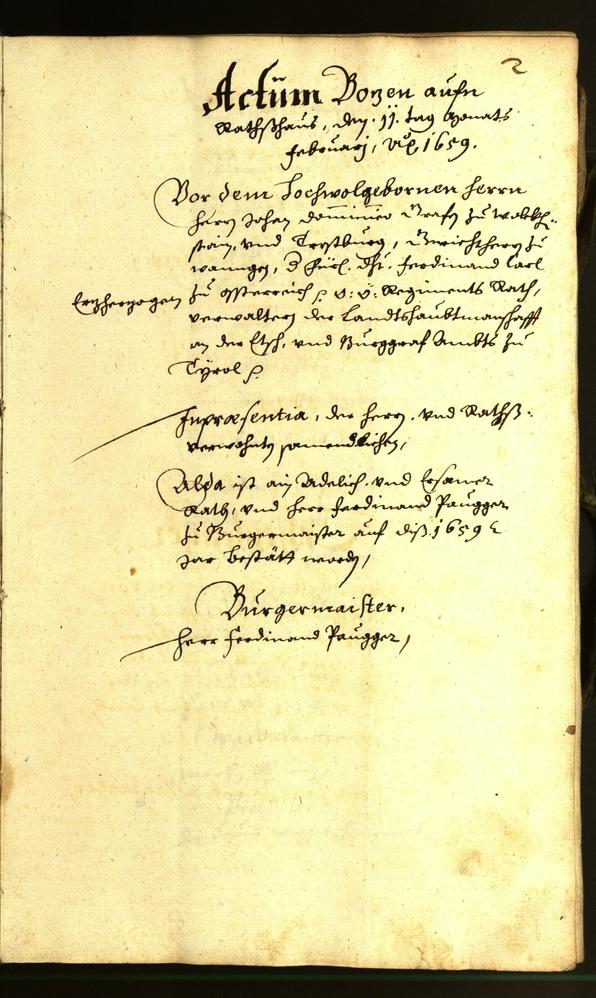 2
Actum Bozen aufn
Rathßhaus, den 11. tag Monats
Februarj, Aō 1659.
Vor dem Hochwolgebornen Herrn
Herrn Johan Dominico Grafn zu Wolckh:
stain, vnd Trostburg, Gerichtherrn zu
Fürl. Dht. Ferdinand Carl
Erzherzogen zu Össterreich p. o: ö: Regiments Rath,
verwaltern der Landtshaubtmanschafft
an der Etsch, vnd Burggraf Ambts zu
Tÿrol p.
Inpræsentia, der Herrn. vnd Rathß:
verwohntn samendtlichen,
Alda ist ain Adelich. vnd Ersamer
Rath, vnd Herr Ferdinand Paugger
zu Burgermaister auf diß 1659 t
Jar bestätt worden,
Burgermaister.
Herr Ferdinand Paugger,